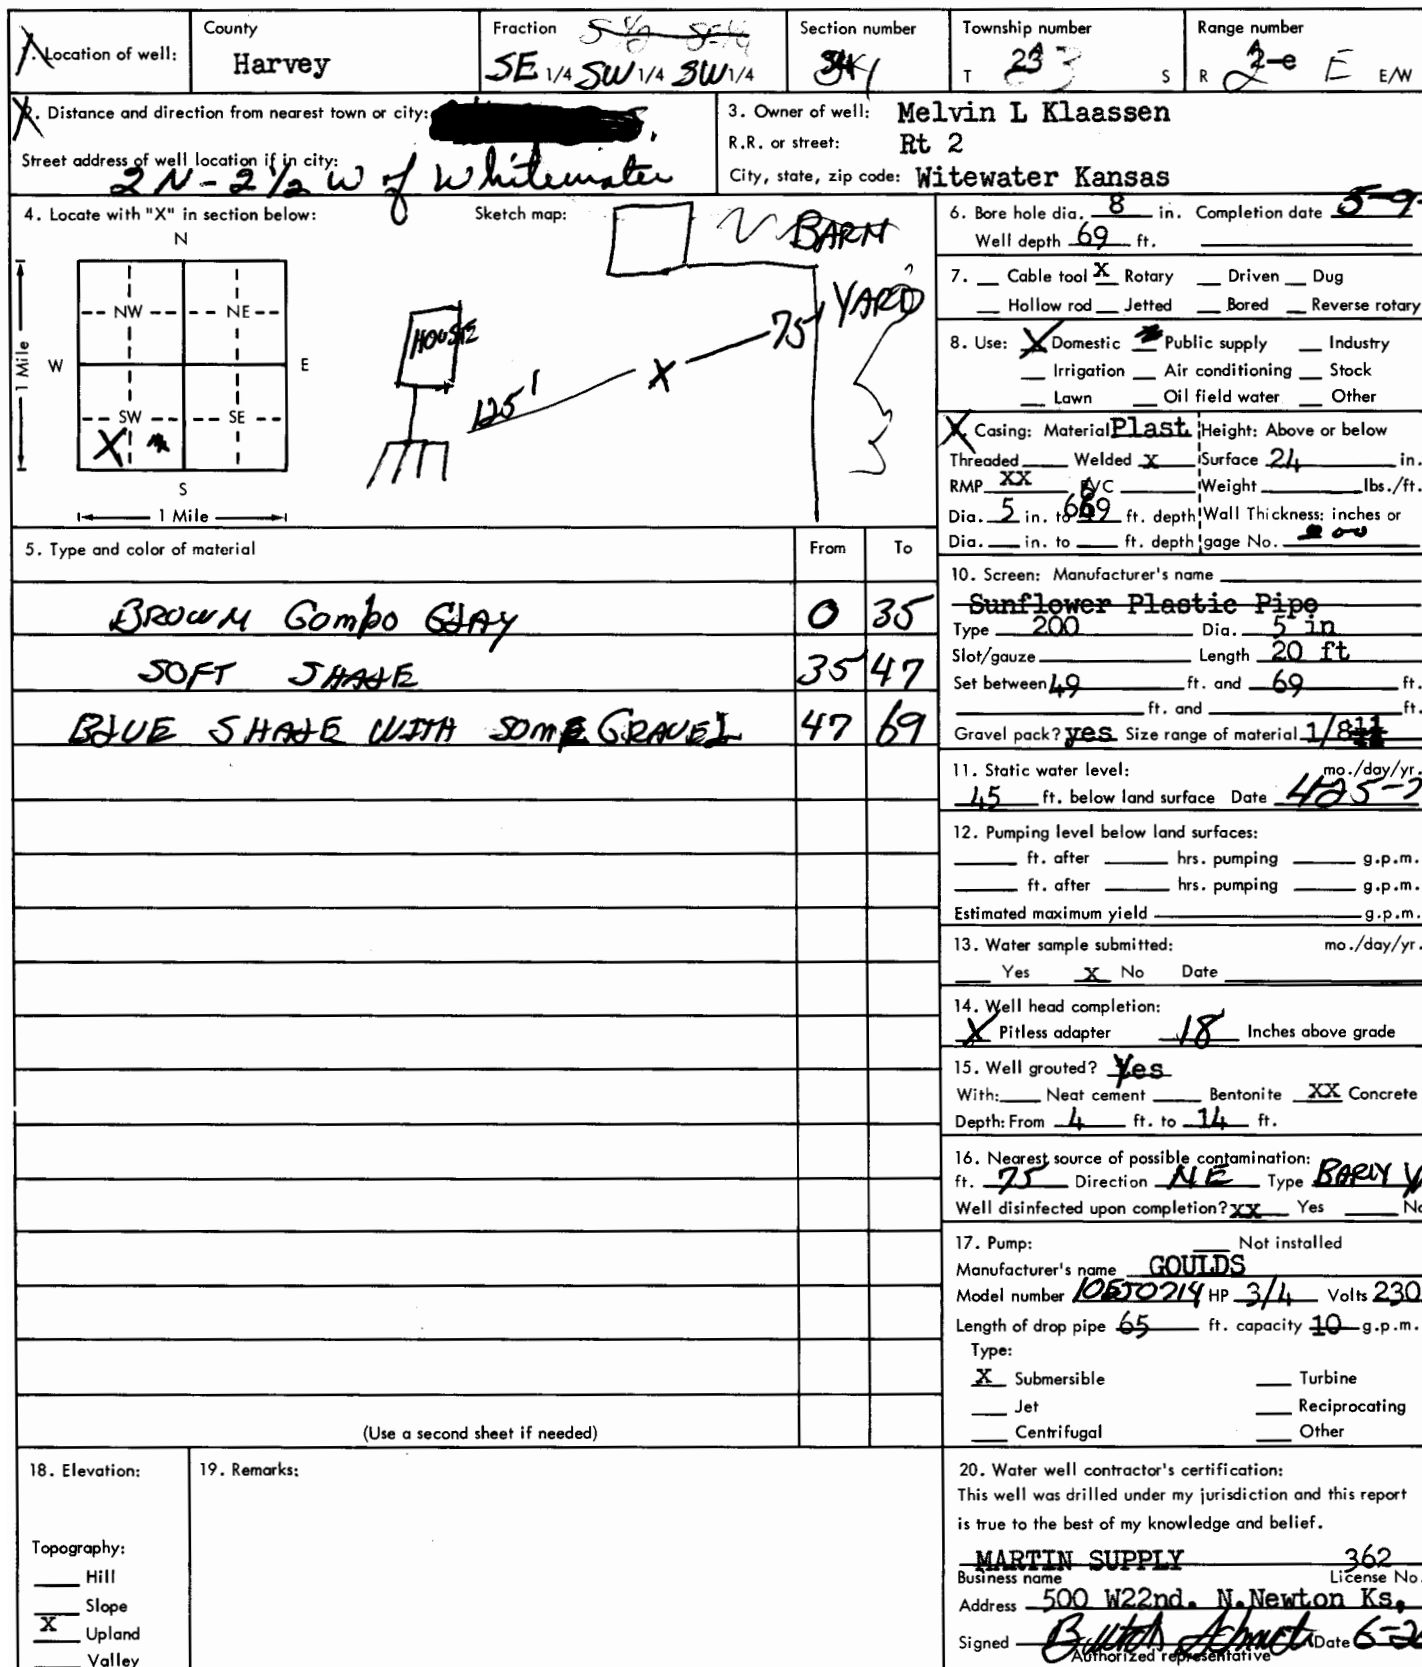 1. Location of well: County Harvey Fraction SE 1/4 SW 1/4 SW 1/4 Section number Township number T 23 S Range number R 2-e E E/W
2. Distance and direction from nearest town or city:
Street address of well location if in city:
2 N - 2 1/2 W of Whitewater
3. Owner of well: Melvin L Klaassen
R.R. or street: Rt 2
City, state, zip code: Witewater Kansas
4. Locate with "X" in section below: Sketch map:
N
NW NE
W E
SW SE
X
S
1 Mile
1 Mile
BARN
YARD
HOUSE
75'
X
125'
5. Type and color of material From To
BROWN Gombo CLAY 0 35
SOFT SHALE 35 47
BLUE SHALE WITH SOME GRAVEL 47 69
(Use a second sheet if needed)
6. Bore hole dia. 8 in. Completion date 5-9-
Well depth 69 ft.
7. Cable tool X Rotary Driven Dug
Hollow rod Jetted Bored Reverse rotary
8. Use: X Domestic Public supply Industry
Irrigation Air conditioning Stock
Lawn Oil field water Other
9. Casing: Material Plast Height: Above or below
Threaded Welded X Surface 24 in.
RMP XX PVC Weight lbs./ft.
Dia. 5 in. to 69 ft. depth Wall Thickness: inches or
Dia. in. to ft. depth gage No.
10. Screen: Manufacturer's name
Sunflower Plastic Pipe
Type 200 Dia. 5 in
Slot/gauze Length 20 ft
Set between 49 ft. and 69 ft.
ft. and ft.
Gravel pack? yes Size range of material 1/8
11. Static water level: mo./day/yr.
45 ft. below land surface Date 4-25-7
12. Pumping level below land surfaces:
ft. after hrs. pumping g.p.m.
ft. after hrs. pumping g.p.m.
Estimated maximum yield g.p.m.
13. Water sample submitted: mo./day/yr.
Yes X No Date
14. Well head completion:
X Pitless adapter 18 Inches above grade
15. Well grouted? Yes
With: Neat cement Bentonite XX Concrete
Depth: From 4 ft. to 14 ft.
16. Nearest source of possible contamination:
ft. 75 Direction NE Type
Well disinfected upon completion? XX Yes No
17. Pump: Not installed
Manufacturer's name GOULDS
Model number HP 3/4 Volts 230
Length of drop pipe 65 ft. capacity 10 g.p.m.
Type:
X Submersible Turbine
Jet Reciprocating
Centrifugal Other
18. Elevation:
Topography:
Hill
Slope
X Upland
Valley
19. Remarks:
20. Water well contractor's certification:
This well was drilled under my jurisdiction and this report
is true to the best of my knowledge and belief.
MARTIN SUPPLY 362
Business name License No.
Address 500 W22nd. N.Newton Ks.
Signed Date 6-20
Authorized representative